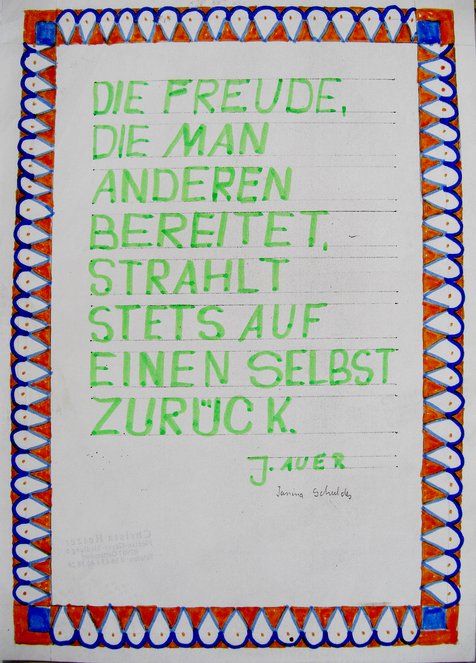 DIE FREUDE,
DIE MAN
ANDEREN
BEREITET,
STRAHLT
STETS AUF
EINEN SELBST
ZURÜCK.
J. AUER